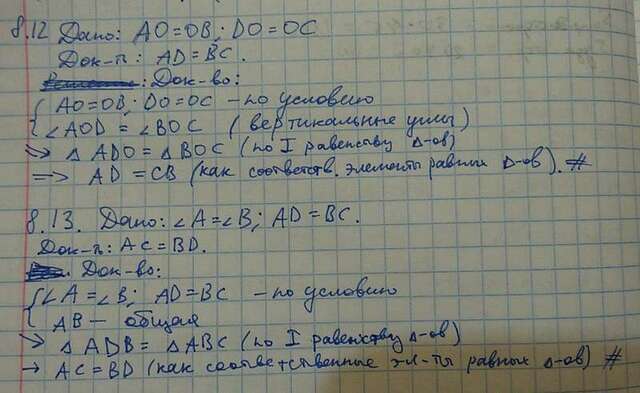 8.12 Дано: AO=OB; DO=OC
Док-ть: AD=BC.
: Док-во:
{ AO=OB; DO=OC – по условию
∠AOD = ∠BOC (вертикальные углы)
=> △ADO = △BOC (по I равенству △-ов)
=> AD=CB (как соответств. элементы равных △-ов). #
8.13. Дано: ∠A=∠B; AD=BC.
Док-ть: AC=BD.
Док-во:
{ ∠A=∠B; AD=BC – по условию
AB – общая
=> △ADB = △ABC (по I равенству △-ов)
→ AC=BD (как соответственные эл-ты равных △-ов) #